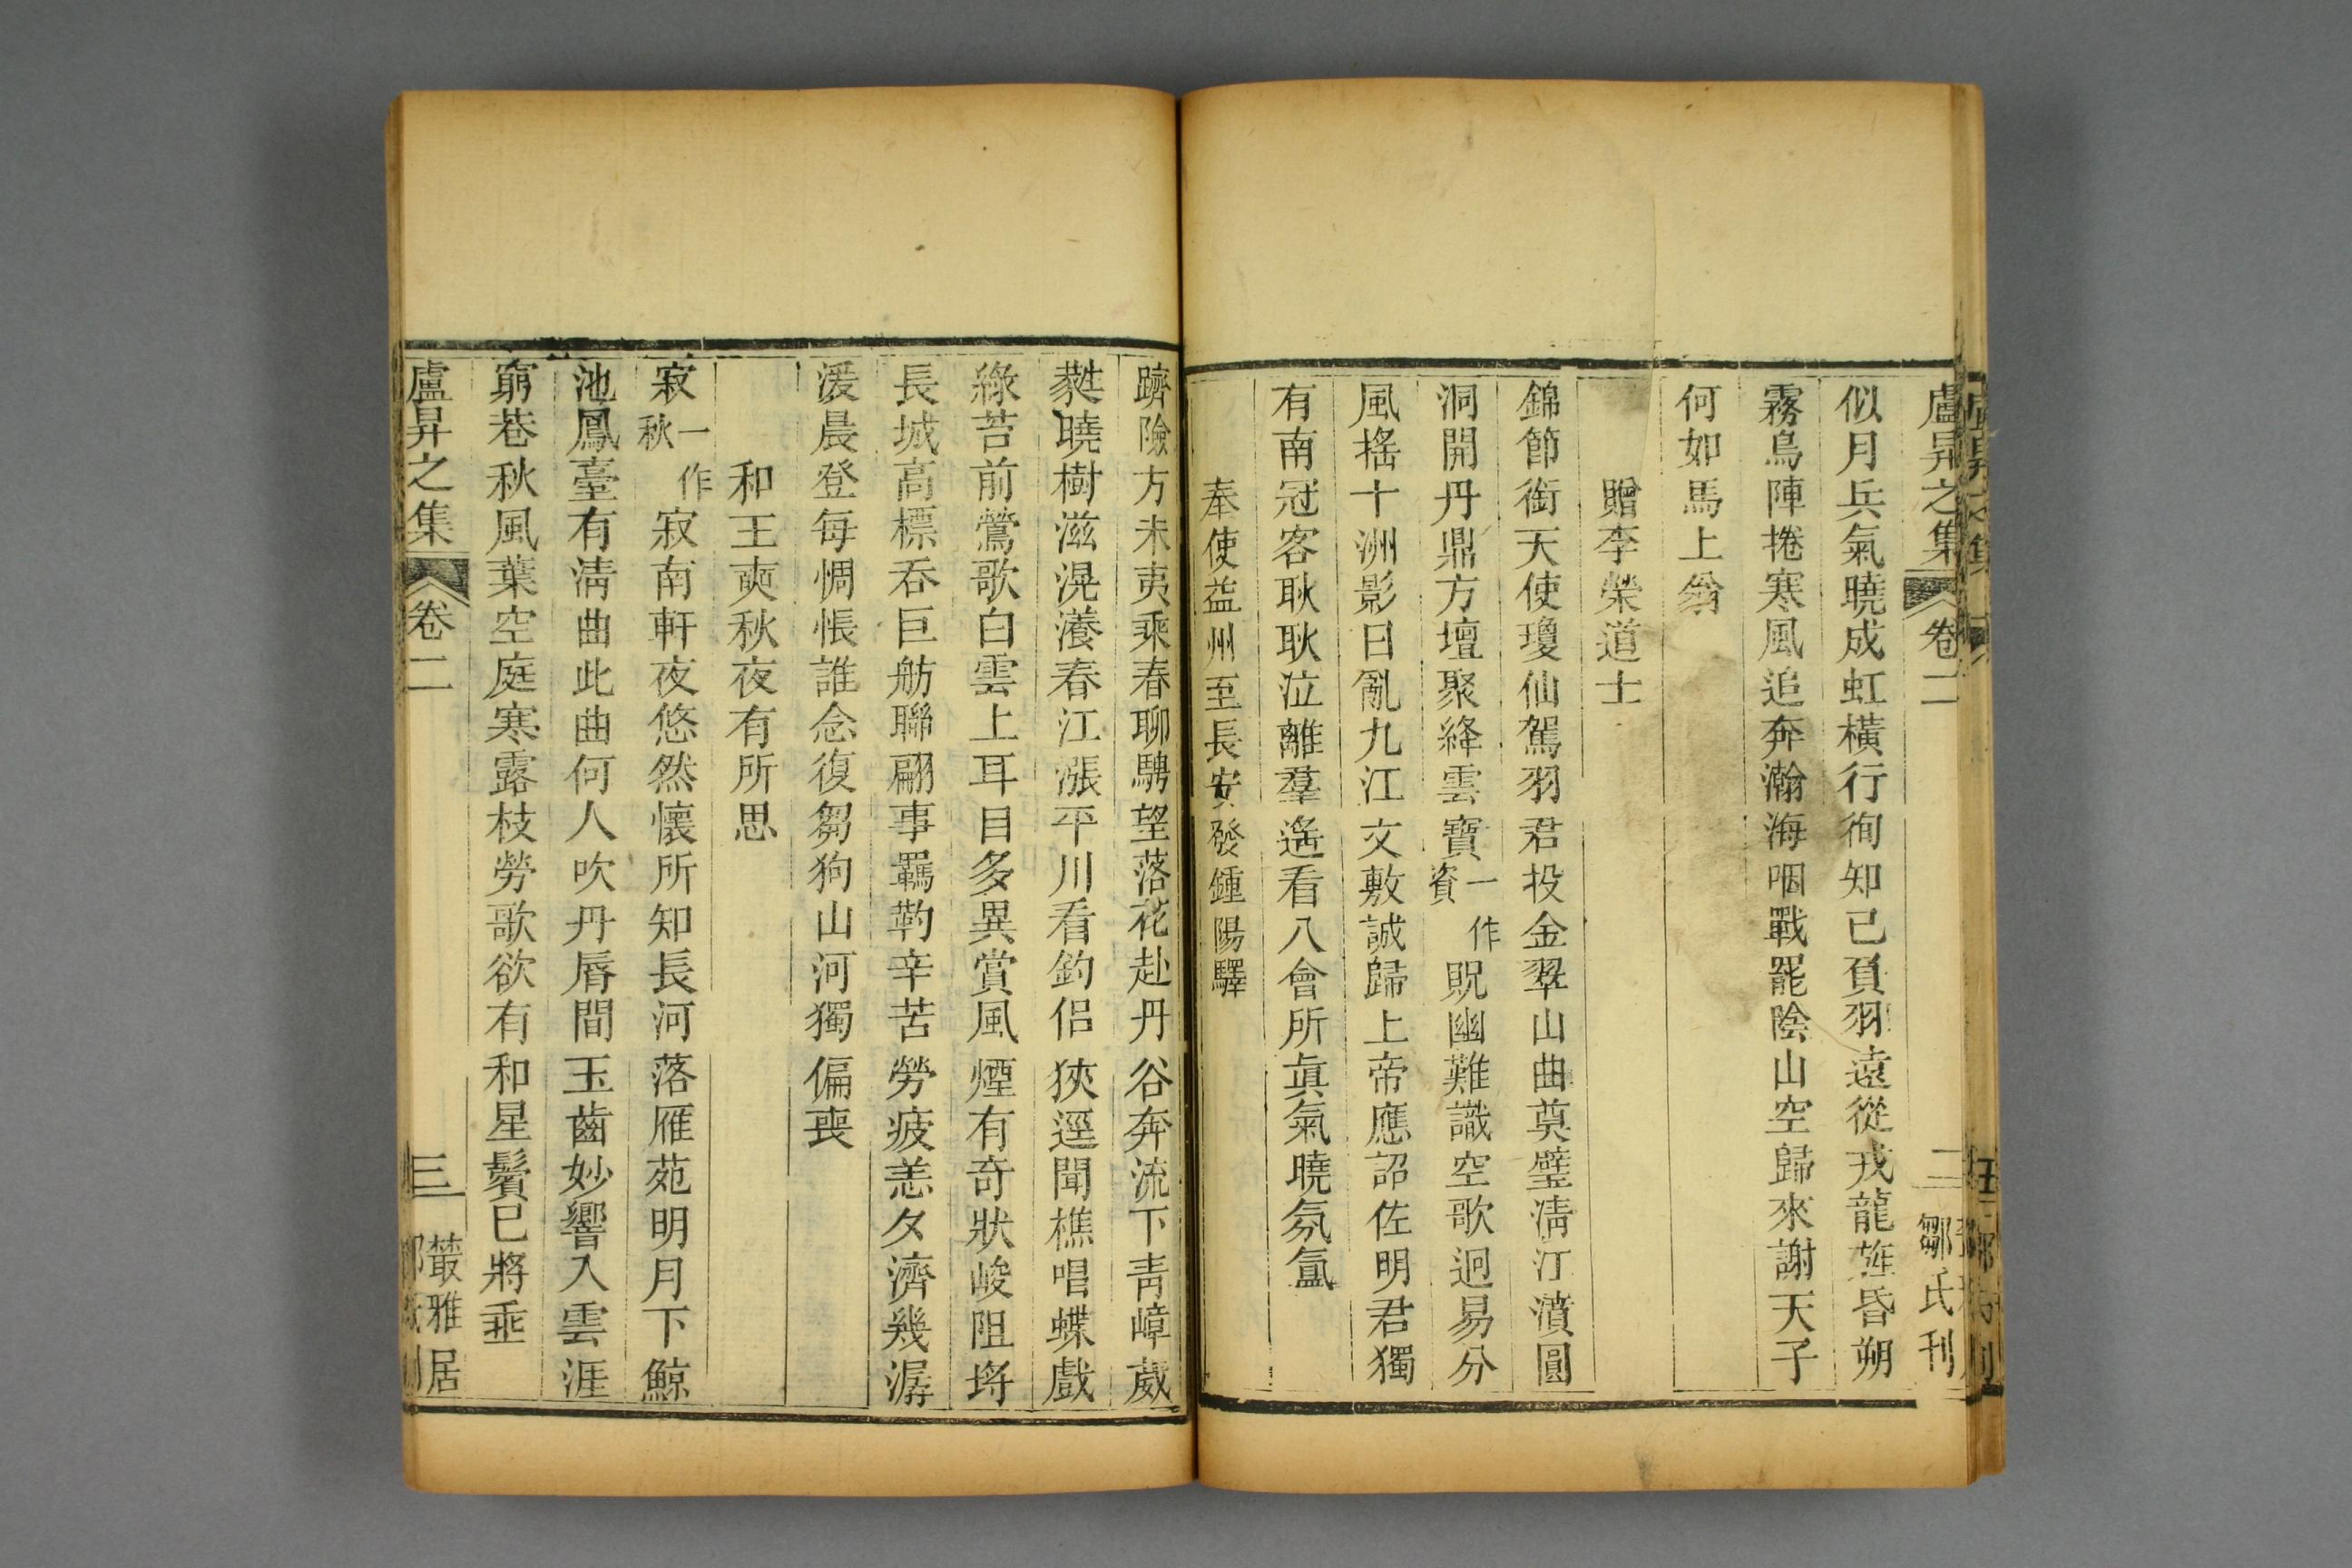 盧昇之集 卷二 二 鄒氏刊
似月兵氣曉成虹橫行徇知已負羽遠從戎龍旌昏朔
霧鳥陣捲寒風追奔瀚海咽戰罷陰山空歸來謝天子
何如馬上翁
贈李榮道士
錦節銜天使瓊仙駕羽君投金翠山曲奠璧淸江濆圓
洞開丹鼎方壇聚絳雲寶一作資貺幽難識空歌迥易分
風搖十洲影日亂九江文敷誠歸上帝應詔佐明君獨
有南冠客耿耿泣離羣遙看八會所眞氣曉氛氳
奉使益州至長安發鍾陽驛
躋險方未夷乘春聊騁望落花赴丹谷奔流下靑嶂葳
蕤曉樹滋滉瀁春江漲平川看釣侶狹逕聞樵唱蝶戲
綠苔前鶯歌白雲上耳目多異賞風煙有奇狀峻阻埒
長城高標吞巨舫聯翩事羈靮辛苦勞疲恙夕濟幾潺
湲晨登每惆悵誰念復芻狗山河獨偏喪
和王奭秋夜有所思
寂秋一作寂南軒夜悠然懷所知長河落雁苑明月下鯨
池鳳臺有淸曲此曲何人吹丹脣間玉齒妙響入雲涯
窮巷秋風葉空庭寒露枝勞歌欲有和星鬢已將垂
盧昇之集 卷二 三 叢雅居